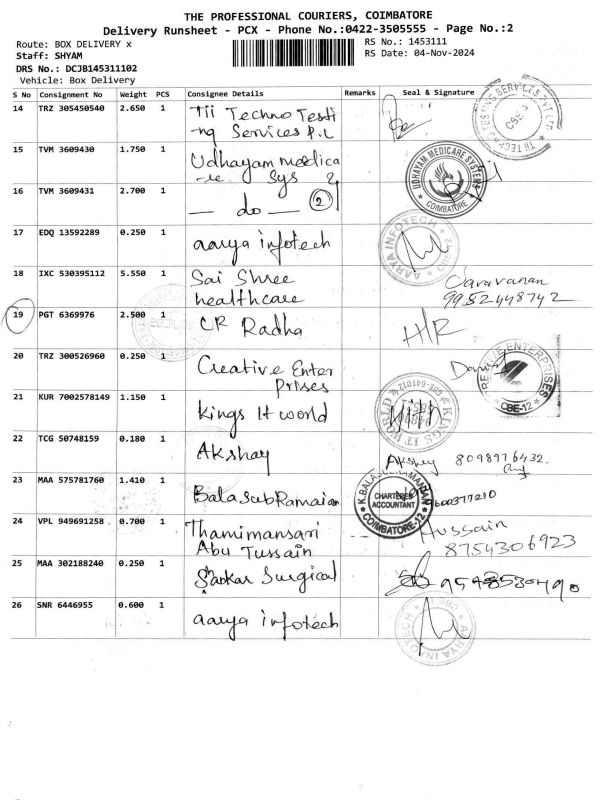 THE PROFESSIONAL COURIERS, COIMBATORE
Delivery Runsheet - PCX - Phone No.:0422-3505555 - Page No.:2
Route: BOX DELIVERY x
RS No.: 1453111
Staff: SHYAM
RS Date: 04-Nov-2024
DRS No.: DCJB145311102
Vehicle: Box Delivery
S No Consignment No Weight PCS Consignee Details Remarks Seal & Signature
14 TRZ 305450540 2.650 1 Tii Techno Testi
ng Services P.L
15 TVM 3609430 1.750 1 Udhayam medica
re Sys
UDHAYAM MEDICARE SYSTEMS
COIMBATORE
16 TVM 3609431 2.700 1 — do — 2
17 EDQ 13592289 0.250 1 aarya infotech
AARYA INFOTECH
CBE-12
18 IXC 530395112 5.550 1 Sai Shree
healthcare
Caravanan
9952448742
19 PGT 6369976 2.500 1 CR Radha
H/R
20 TRZ 300526960 0.250 1 Creative Enter
Prises
CREATIVE ENTERPRISES
CBE-12
21 KUR 7002578149 1.150 1 Kings It world
KINGS IT WORLD
CBE-641012
22 TCG 50748159 0.180 1 Akshay
Akshay 8098976432
23 MAA 575781760 1.410 1 BalasubRamaian
CHARTERED
ACCOUNTANT
COIMBATORE-12
9600377210
24 VPL 949691258 0.700 1 Thamimansari
Abu Tussain
Hussain
8754306923
25 MAA 302188240 0.250 1 Sankar Surgical
9548530490
26 SNR 6446955 0.600 1 aarya infotech
AARYA INFOTECH